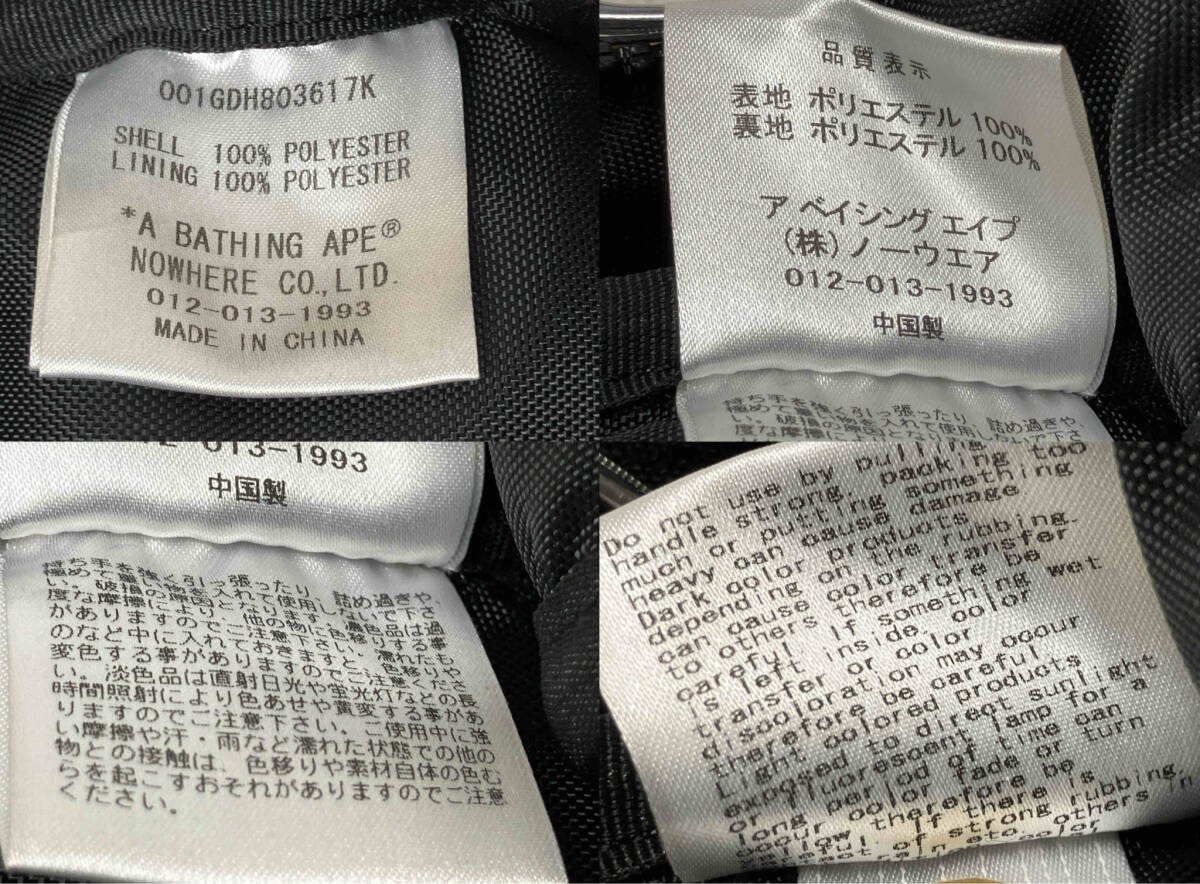 001GDH803617K
SHELL 100% POLYESTER
LINING 100% POLYESTER
*A BATHING APE®
NOWHERE CO., LTD.
012-013-1993
MADE IN CHINA
品質表示
表地 ポリエステル 100%
裏地 ポリエステル 100%
ア ベイシング エイプ
(株)ノーウエア
012-013-1993
中国製
持ち手を強く引っ張ったり、詰め過ぎや、
極めて重い物を入れて使用しないで下さ
い。破損の原因となります。濃色品は過
度な摩擦により、
013-1993
中国製
持ち手を強く引っ張ったり、詰め過ぎや、
極めて重い物を入れて使用しないで下さ
い。破損の原因となります。濃色品は過
度な摩擦により、他の物に色移りする事
がありますのでご注意下さい。濡れたも
のなど中に入れておきますと、色移りや
変色する事がありますのでご注意くださ
い。淡色品は直射日光や蛍光灯などの長
時間照射により色あせや黄変する事があ
りますのでご注意下さい。ご使用中に強
い摩擦や汗・雨など濡れた状態での他の
物との接触は、色移りや素材自体の色む
らを起こすおそれがありますのでご注意
ください。
Do not use by pulling
handle strong, packing too
much or putting something
heavy can cause damage
Dark color products
depending on the rubbing.
can cause color transfer
to others therefore be
careful. If something wet
is left inside, color
transfer or color
discoloration may occur
therefore be careful.
Light colored products
exposed to direct sunlight
or fluorescent lamp for a
long period of time can
occur color fade or turn
yellow therefore be
If there is
of strong rubbing,
rain etc. others in
color